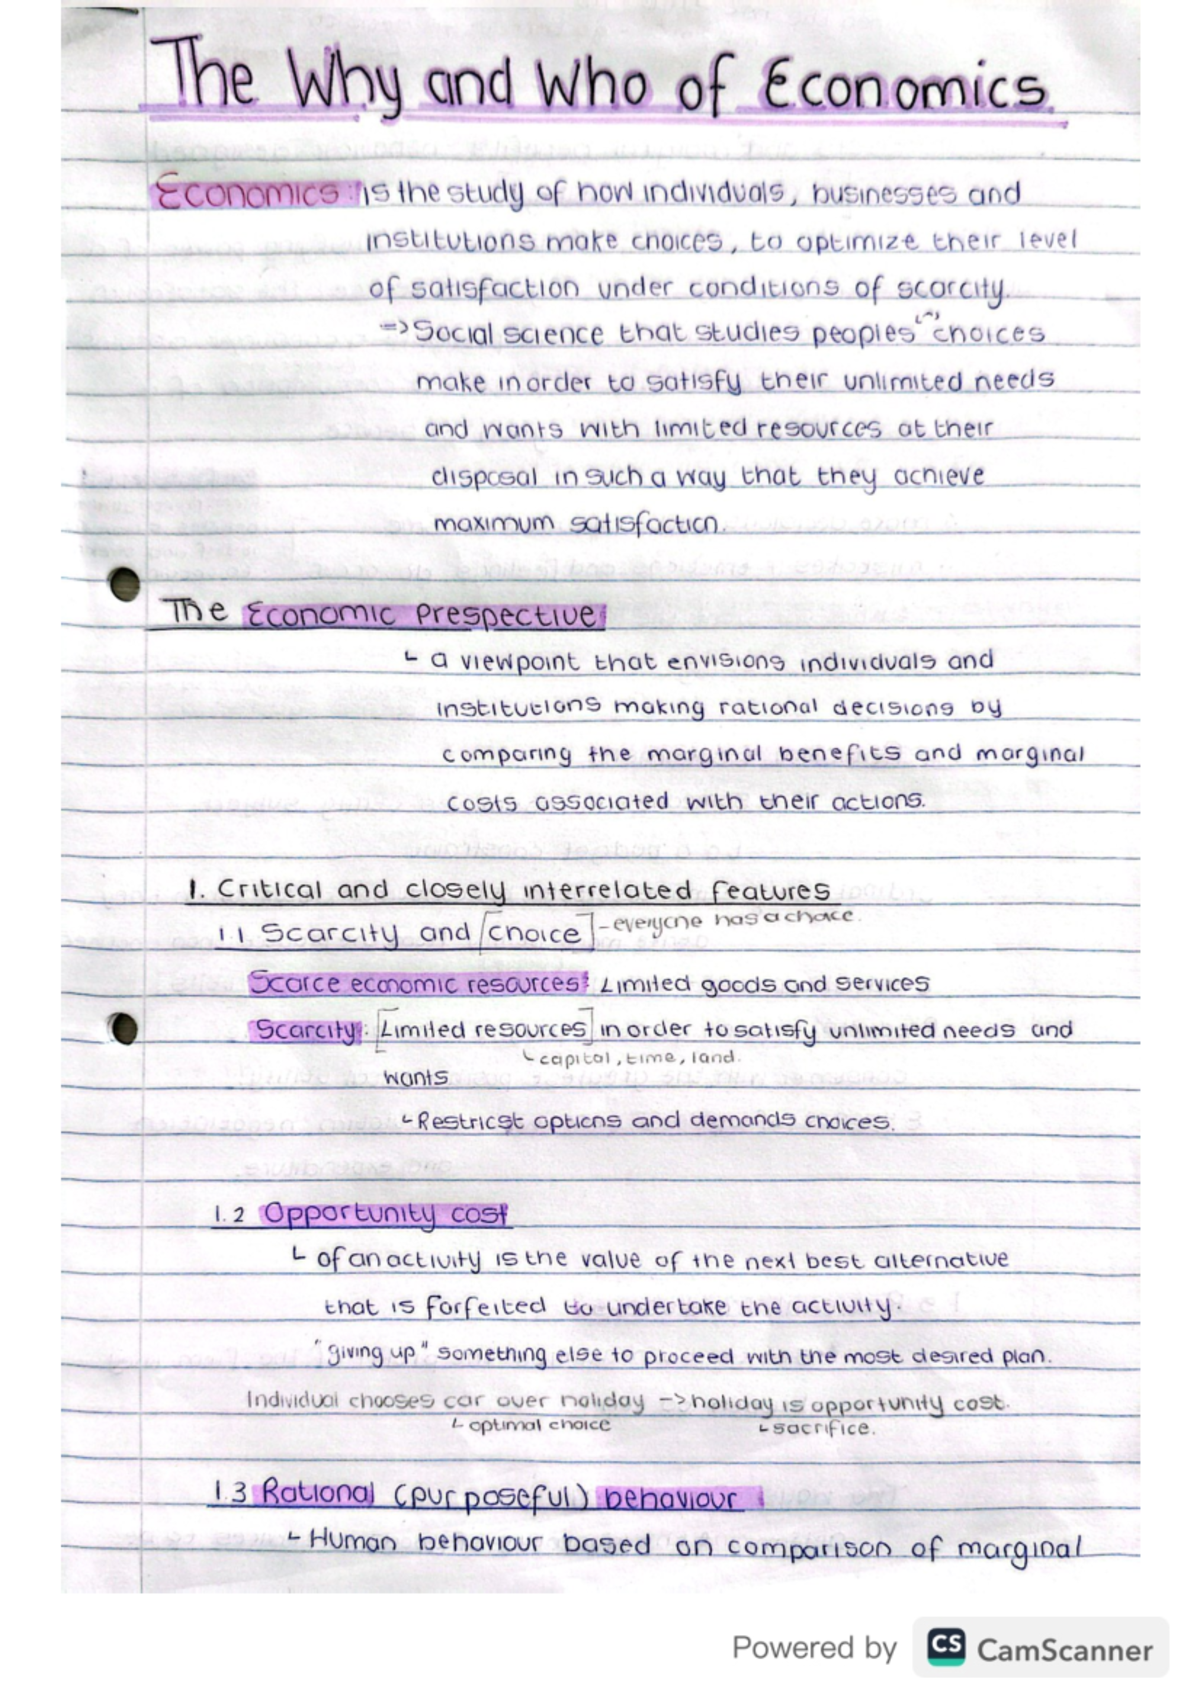 The Why and Who of Economics
Economics: is the study of how individuals, businesses and
institutions make choices, to optimize their level
of satisfaction under conditions of scarcity.
=> Social science that studies peoples' choices
make in order to satisfy their unlimited needs
and wants with limited resources at their
disposal in such a way that they achieve
maximum satisfaction.
The Economic Prespective
↳ a viewpoint that envisions individuals and
institutions making rational decisions by
comparing the marginal benefits and marginal
costs associated with their actions.
1. Critical and closely interrelated features
1.1 Scarcity and [choice] - everyone has a choice.
Scarce economic resources: Limited goods and services
Scarcity: [Limited resources] in order to satisfy unlimited needs and
↳ capital, time, land.
wants
↳ Restricst options and demands choices.
1.2 Opportunity cost
↳ of an activity is the value of the next best alternative
that is forfeited to undertake the activity.
"giving up" something else to proceed with the most desired plan.
Individual chooses car over holiday -> holiday is opportunity cost.
↳ optimal choice ↳ sacrifice.
1.3 Rational (purposeful) behaviour
↳ Human behaviour based on comparison of marginal
Powered by CS CamScanner